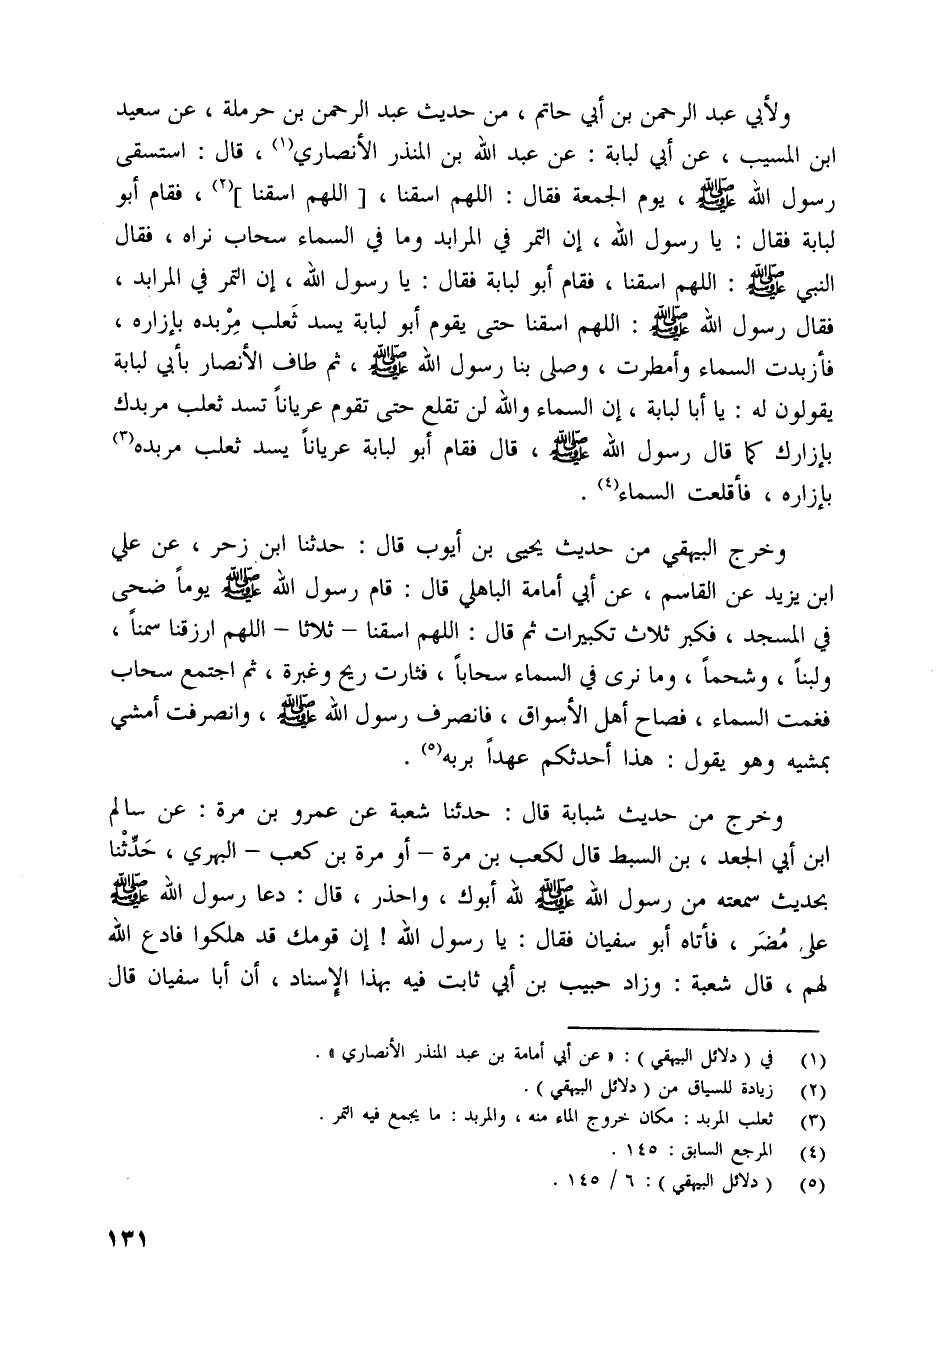 ولأبي عبد الرحمن بن أبي حاتم ، من حديث عبد الرحمن بن حرملة ، عن سعيد
ابن المسيب ، عن أبي لبابة : عن عبد الله بن المنذر الأنصاري(١) ، قال : استسقى
رسول الله ﷺ ، يوم الجمعة فقال : اللهم اسقنا ، [ اللهم اسقنا ](٢) ، فقام أبو
لبابة فقال : يا رسول الله ، إن التمر في المرابد وما في السماء سحاب نراه ، فقال
النبي ﷺ : اللهم اسقنا ، فقام أبو لبابة فقال : يا رسول الله ، إن التمر في المرابد ،
فقال رسول الله ﷺ : اللهم اسقنا حتى يقوم أبو لبابة يسد ثَعلب مِرْبده بإزاره ،
فأزبدت السماء وأمطرت ، وصلى بنا رسول الله ﷺ ، ثم طاف الأنصار بأبي لبابة
يقولون له : يا أبا لبابة ، إن السماء والله لن تقلع حتى تقوم عرياناً تسد ثعلب مربدك
بإزارك كما قال رسول الله ﷺ ، قال فقام أبو لبابة عرياناً يسد ثعلب مربده(٣)
بإزاره ، فأقلعت السماء(٤) .
وخرج البيهقي من حديث يحيى بن أيوب قال : حدثنا ابن زحر ، عن علي
ابن يزيد عن القاسم ، عن أبي أمامة الباهلي قال : قام رسول الله ﷺ يوماً ضحى
في المسجد ، فكبر ثلاث تكبيرات ثم قال : اللهم اسقنا – ثلاثا – اللهم ارزقنا سمناً ،
ولبناً ، وشحماً ، وما نرى في السماء سحاباً ، فثارت ريح وغبرة ، ثم اجتمع سحاب
فغمت السماء ، فصاح أهل الأسواق ، فانصرف رسول الله ﷺ ، وانصرفت أمشي
بمشيه وهو يقول : هذا أحدثكم عهداً بربه(٥) .
وخرج من حديث شبابة قال : حدثنا شعبة عن عمرو بن مرة : عن سالم
ابن أبي الجعد ، بن السبط قال لكعب بن مرة – أو مرة بن كعب – البهري ، حَدِّثْنا
بحديث سمعته من رسول الله ﷺ لله أبوك ، واحذر ، قال : دعا رسول الله ﷺ
على مُضَر ، فأتاه أبو سفيان فقال : يا رسول الله ! إن قومك قد هلكوا فادع الله
لهم ، قال شعبة : وزاد حبيب بن أبي ثابت فيه بهذا الإسناد ، أن أبا سفيان قال
(١) في ( دلائل البيهقي ) : « عن أبي أمامة بن عبد المنذر الأنصاري » .
(٢) زيادة للسياق من ( دلائل البيهقي ) .
(٣) ثعلب المربد : مكان خروج الماء منه ، والمربد : ما يجمع فيه التمر .
(٤) المرجع السابق : ١٤٥ .
(٥) ( دلائل البيهقي ) : ٦ / ١٤٥ .
١٣١